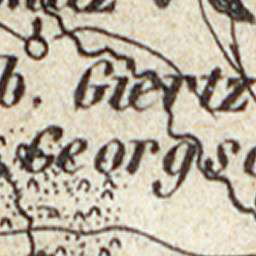 b. Giertz
Georgs